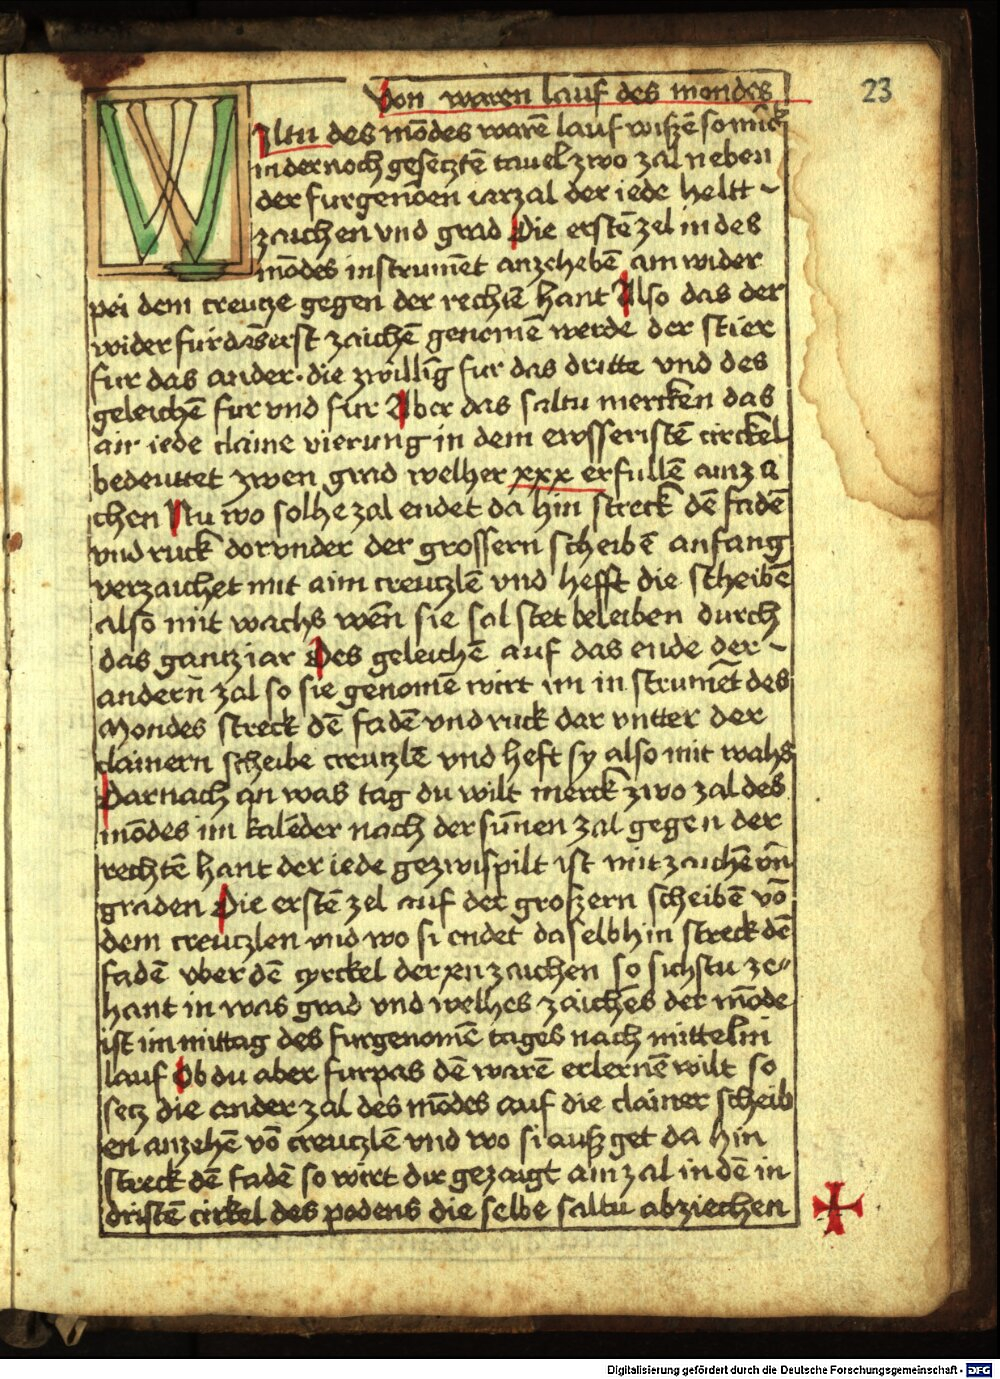 Von waren lauf des mondes
23
WIltu des mōdes warē lauf wißzē so mück
in der noch gesetztē tauel zwo zal neben
der furgenōen iarzal der iede heltt ~
zaichen vnd grad Die erstē zel in des
mōdes instrumēt anzehebē am wider
pei dem creutze gegen der rechtē hant Also das der
wider fur das erst zaichē genomē werde der stier
fur das ander · die zwillīg fur das dritte vnd des
geleichē fur vnd fur Aber das saltu mercken das
ain iede claine vierung in dem ewsseristē circkel
bedeuttet zwen grad welher xxx erfullē ain zai
chen Nu wo solhe zal endet da hin streck dē fadē
vnd ruck dorvnder der grossern scheibē anfang
verzaichet mit aim creutzlē vnd hefft die scheibē
also mit wachs wēn sie sol stet beleiben durch
das gantz iar Des geleichē auf das ende der ~
andern zal so sie genomē wirt im instrumēt des
Mondes streck dē fadē vnd ruck dar vntter der
clainern scheibe creutzlē vnd heft sy also mit wahs
Darnach an was tag du wilt merck zwo zal des
mōdes im kalēder nach der sūnen zal gegen der
rechtē hant der iede gezwispilt ist mit zaichē vn̄
graden Die erstē zel auf der großern scheibē vō
dem creutzlen vnd wo si endet daselbhin streck dē
fadē vber dē cyrckel der xii zaichen so sichstu ze-
hant in was grad vnd welhes zaichēs der mōde
ist im mittag des furgenomē tages nach mittelm
lauf Ob du aber furpas dē warē erlernē wilt so
setz die ander zal des mōdes auf die clainer scheib
en anzehē vō creutzlē vnd wo si außget da hin
streck dē fadē so wirt dir gezaigt ain zal in dē in
dristē cirkel des podens die selbe saltu abziechen
Digitalisierung gefördert durch die Deutsche Forschungsgemeinschaft - DFG